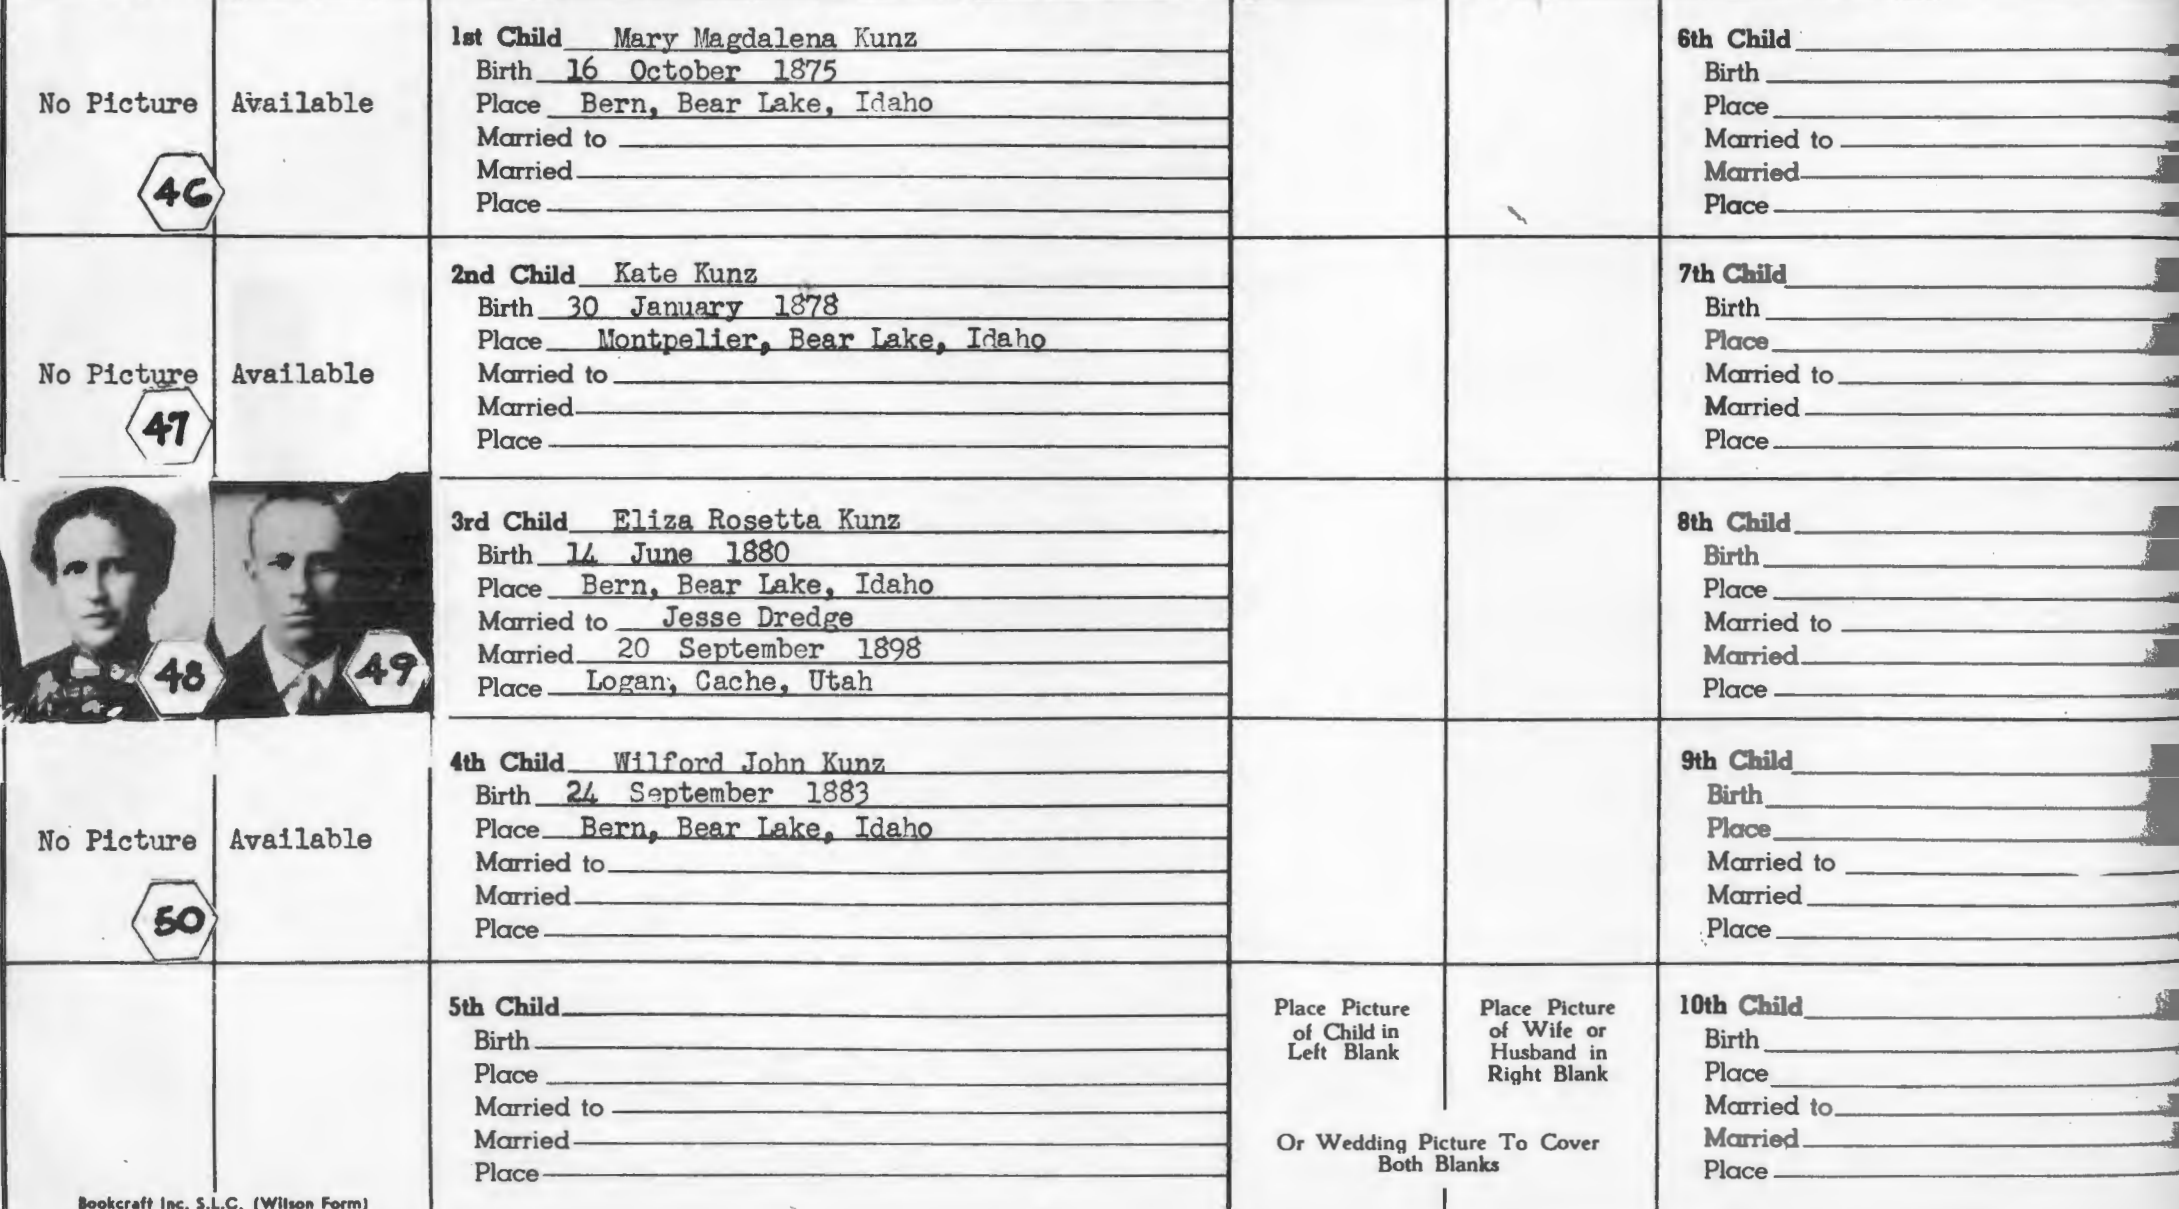 No Picture Available
46
1st Child Mary Magdalena Kunz
Birth 16 October 1875
Place Bern, Bear Lake, Idaho
Married to
Married
Place
No Picture Available
47
2nd Child Kate Kunz
Birth 30 January 1878
Place Montpelier, Bear Lake, Idaho
Married to
Married
Place
48
49
3rd Child Eliza Rosetta Kunz
Birth 14 June 1880
Place Bern, Bear Lake, Idaho
Married to Jesse Dredge
Married 20 September 1898
Place Logan, Cache, Utah
No Picture Available
50
4th Child Wilford John Kunz
Birth 24 September 1883
Place Bern, Bear Lake, Idaho
Married to
Married
Place
5th Child
Birth
Place
Married to
Married
Place
Bookcraft Inc. S.L.C. (Wilson Form)
6th Child
Birth
Place
Married to
Married
Place
7th Child
Birth
Place
Married to
Married
Place
8th Child
Birth
Place
Married to
Married
Place
9th Child
Birth
Place
Married to
Married
Place
Place Picture
of Child in
Left Blank
Place Picture
of Wife or
Husband in
Right Blank
Or Wedding Picture To Cover
Both Blanks
10th Child
Birth
Place
Married to
Married
Place